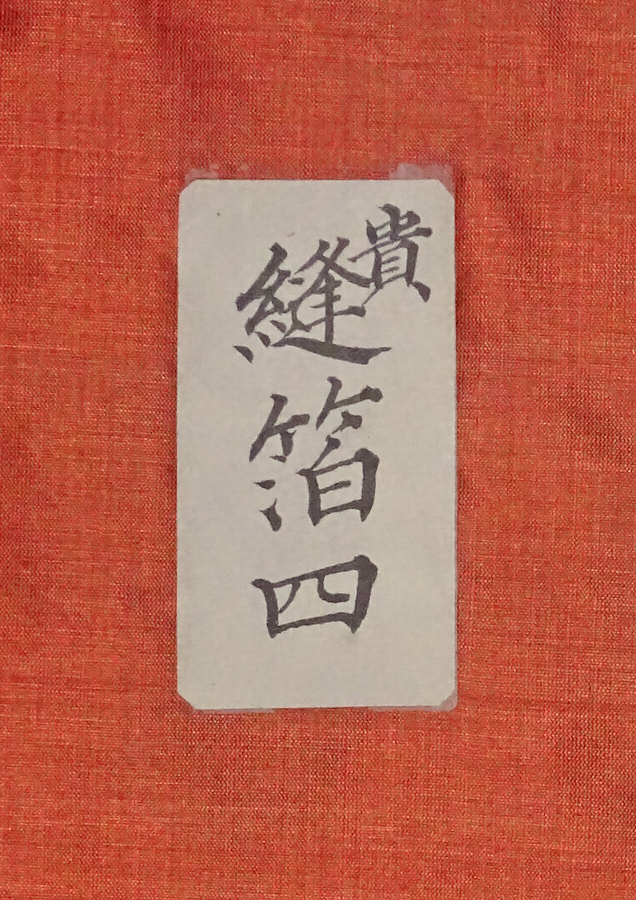 貴
縫箔四